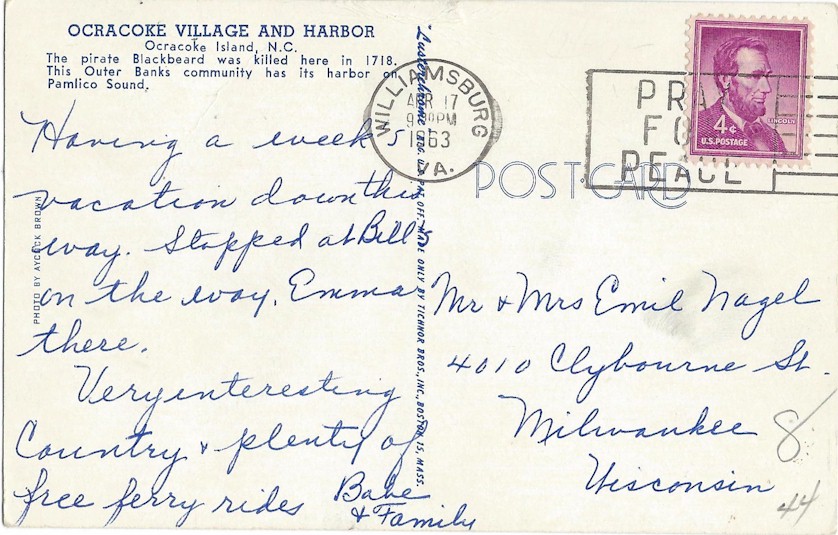 OCRACOKE VILLAGE AND HARBOR
Ocracoke Island, N.C.
The pirate Blackbeard was killed here in 1718.
This Outer Banks community has its harbor on
Pamlico Sound.
Having a week's
vacation down this
way. Stopped at Bill's
on the way. Emma
there.
Very interesting
Country & plenty of
free ferry rides
Babe
& Family
PHOTO BY AYCOCK BROWN
"Lusterchrome" REG. U.S. PAT. OFF. MADE ONLY BY TICHNOR BROS., INC., BOSTON 15, MASS.
WILLIAMSBURG
APR 17
PM
1963
VA.
PRAY
FOR
PEACE
LINCOLN
4¢
U.S. POSTAGE
POST CARD
Mr & Mrs Emil Nagel
4010 Clybourne St.
Milwaukee 8
Wisconsin
44